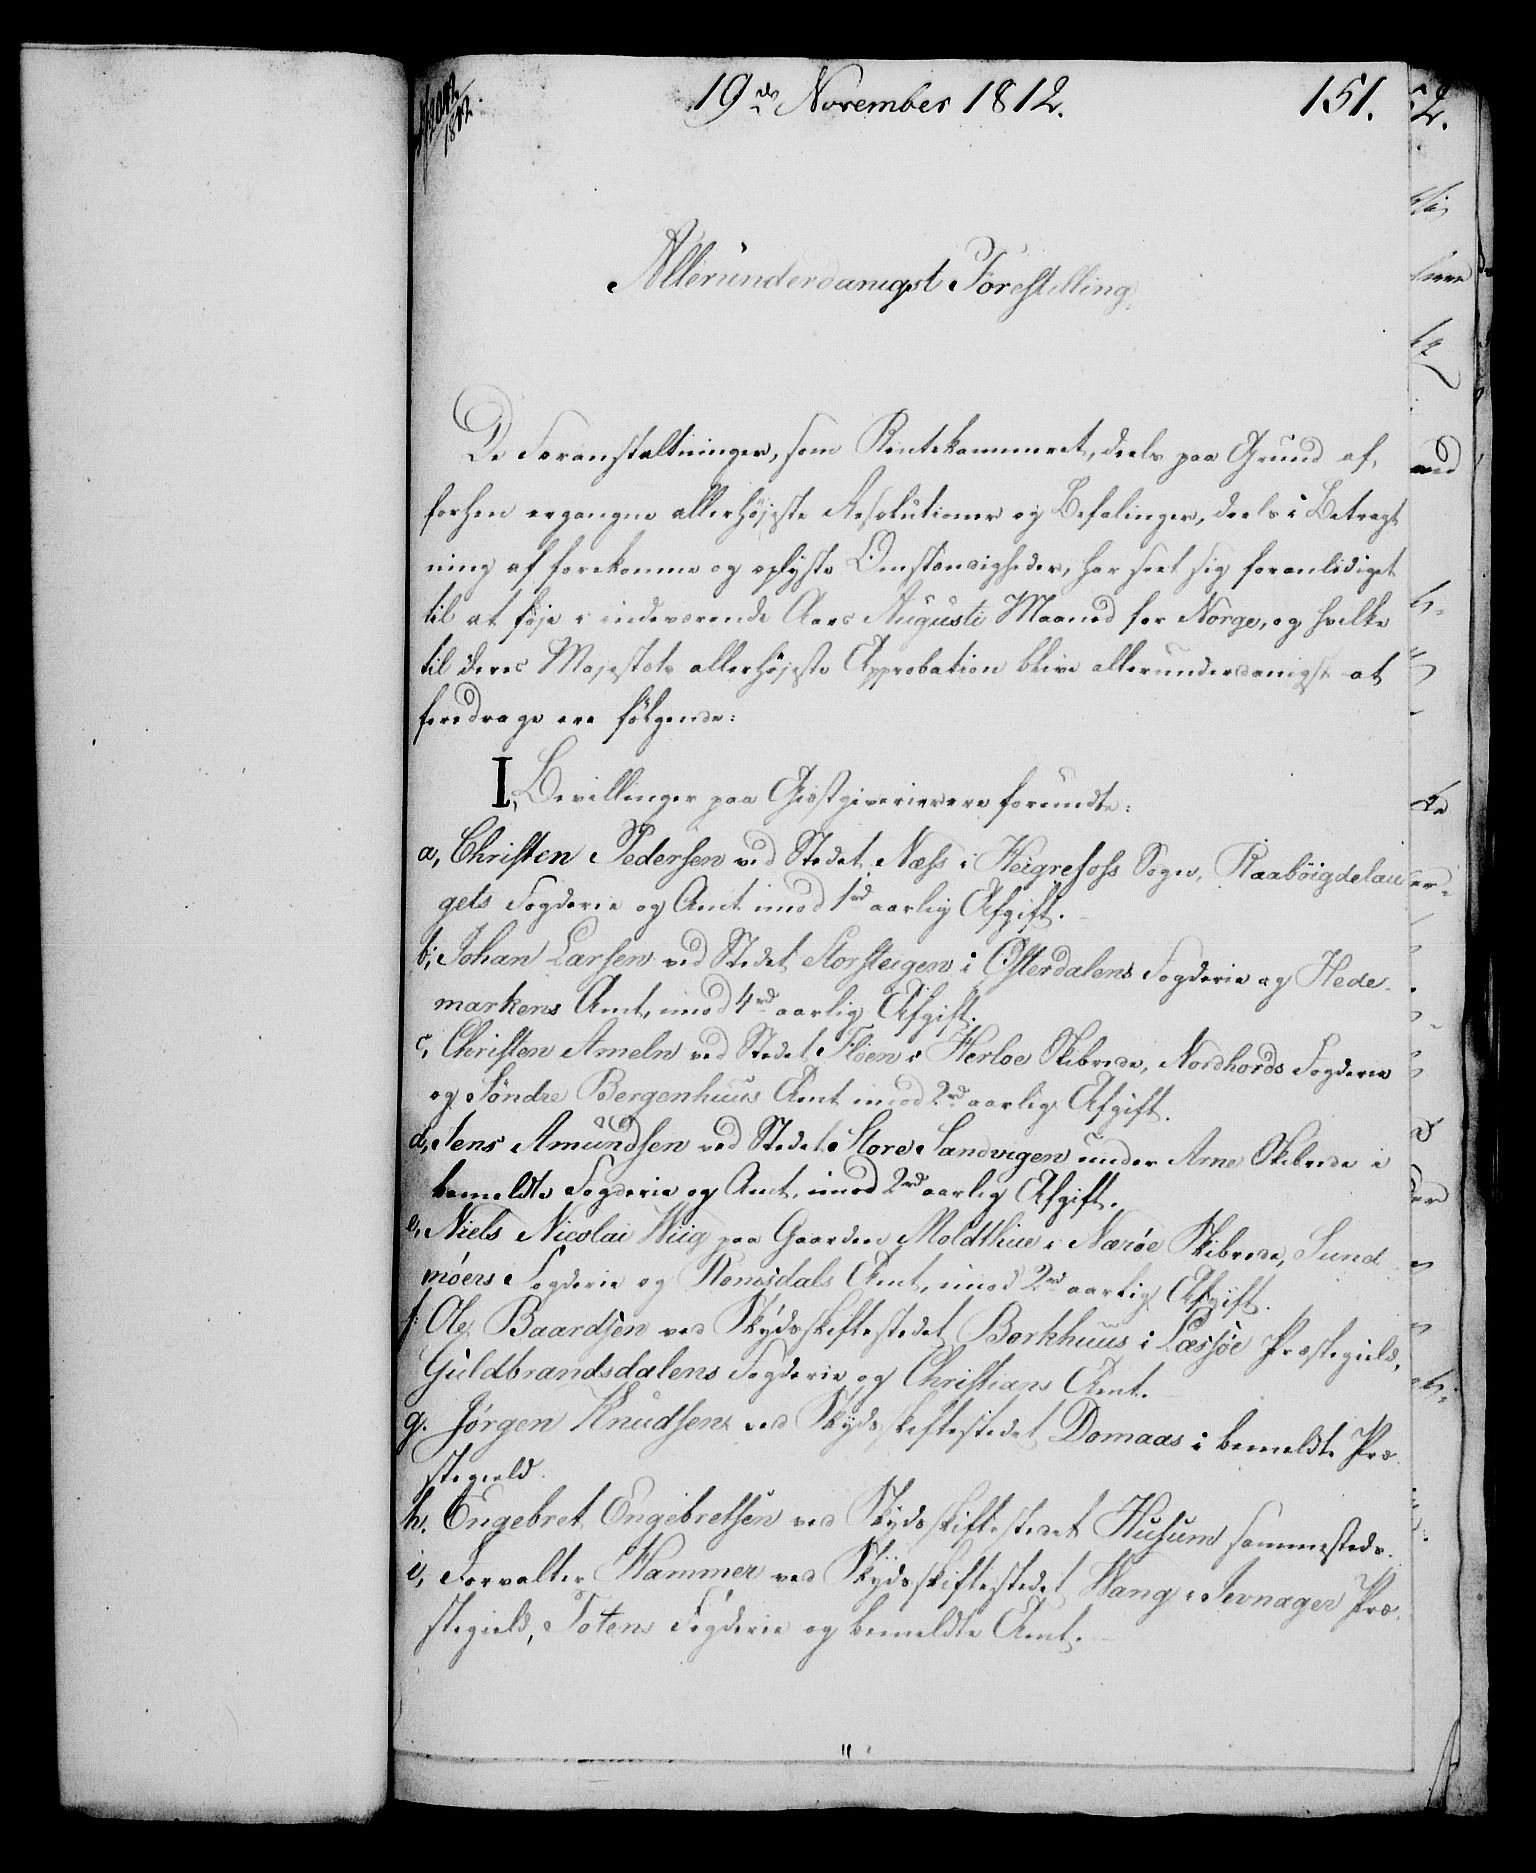 19de November 1812.
151.
Allerunderdanigst Forestilling.
De Foranstaltninger, som Rentekammeret, deels paa Grund af,
forhen ergangne allerhöjeste Resolutioner og Befalinger, deels i Betragt
ning af forekomne og oplyste Omstændigheder, har seet sig foranlediget
til at föje i indeværende Aars Augusti Maaned for Norge, og hvilke
til Deres Majestets allerhöjeste Approbation blive allerunderdanigst at
foredrage ere fölgende:
I, Bevillinger paa Giæstgiverier ere forundte:
a, Christen Pedersen ved Stedet Næss i Heigrefoss Sogn, Raaböigdelau
gets Fogderie og Amt imod 1rd aarlig Afgift.
b, Johan Larsen ved Stedet Storsteigen i Österdalens Fogderie og Hede
markens Amt, imod 4rd aarlig Afgift.
c, Christen Ameln ved Stedet Flöen i Herloe Skibrede, Nordhords Fogderie
og Söndre Bergenhuus Amt imod 2rd aarlig Afgift.
d, Jens Amundsen ved Stedet Store Sandvigen under Arne Skibrede i
bemeldte Fogderie og Amt, imod 2rd aarlig Afgift.
e, Niels Nicolai Wiig paa Gaarden Moldthue i Næröe Skibrede, Sund
möers Fogderie og Romsdals Amt, imod 2rd aarlig Afgift.
f. Ole Baardsen ved Skydsskiftestedet Borkhuus i Læssöe Præstegield,
Guldbrandsdalens Fogderie og Christians Amt.
g. Jörgen Knudsen ved Skydsskiftestedet Domaas i bemeldte Præ
stegield.
h. Engebret Engebretsen ved Skydsskiftestedet Husum sammesteds.
i, Forvalter Hammer ved Skydsskiftestedet Wang i Jevnager Præ
stegield, Totens Fogderie og bemeldte Amt.